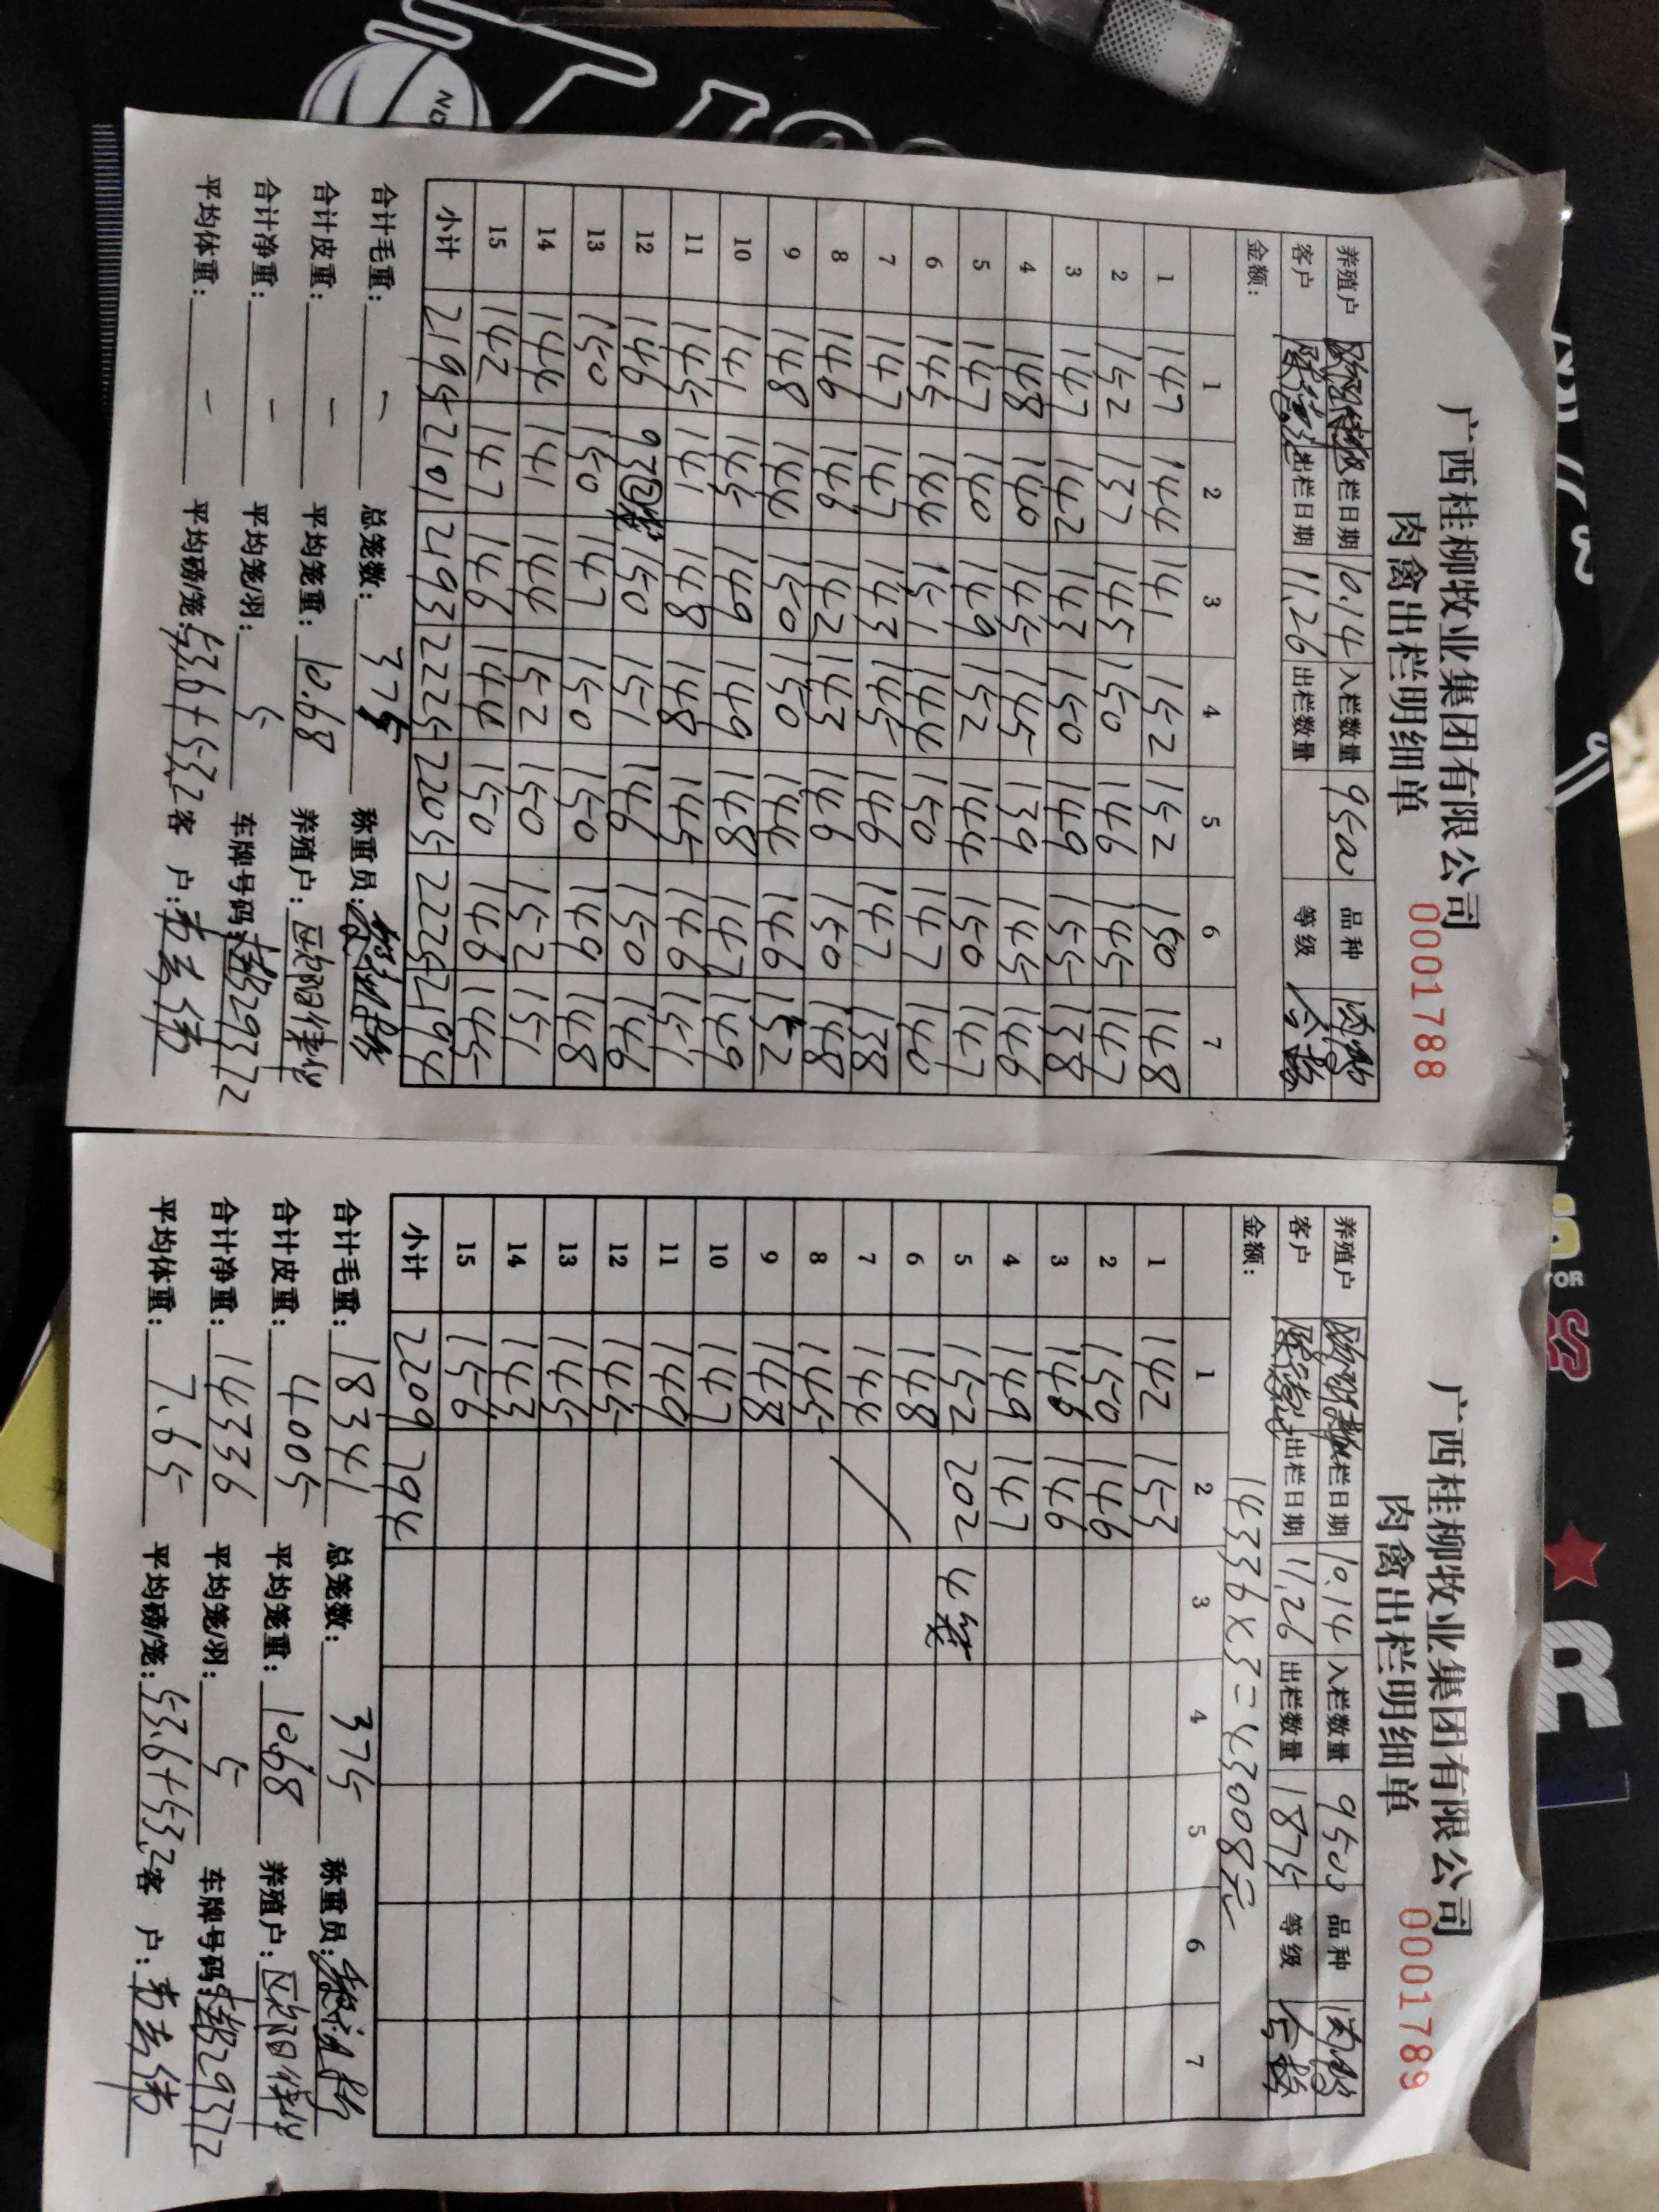 广西桂柳牧业集团有限公司
肉禽出栏明细单 0001788
养殖户 栏日期 10.14 入栏数量 9500 品种 肉鸭
客户 出栏日期 11.26 出栏数量 等级 合格
金额：
1 2 3 4 5 6 7
1 147 144 141 152 152 150 148
2 152 137 145 150 146 145 147
3 147 142 143 150 149 155 138
4 148 140 145 145 139 145 146
5 147 140 149 152 144 150 147
6 145 144 151 144 150 147 140
7 147 147 143 145 146 147 138
8 146 146 142 143 146 150 148
9 148 144 150 150 144 146 152
10 141 145 149 149 148 147 149
11 145 141 148 148 145 146 151
12 146 93 150 151 146 150 146
13 150 150 147 150 150 149 148
14 144 141 144 152 150 152 151
15 142 147 146 144 150 146 145
小计 2195 2101 2193 2225 2205 2225 2194
合计毛重：— 总笼数：375 称重员：
合计皮重：— 平均笼重：10.68 养殖户：
合计净重：— 平均笼/羽：5 车牌号码： 29372
平均体重：— 平均磅/笼：53.6+53.2 客 户：
广西桂柳牧业集团有限公司
肉禽出栏明细单 0001789
养殖户 栏日期 10.14 入栏数量 9500 品种 肉鸭
客户 出栏日期 11.26 出栏数量 1875 等级 合格
金额： 14336×3=43008元
1 2 3 4 5 6 7
1 142 153
2 150 146
3 148 146
4 149 147
5 152 202 4笼
6 148
7 144
8 145
9 148
10 147
11 149
12 145
13 145
14 143
15 156
小计 2209 794
合计毛重：18341 总笼数：375 称重员：
合计皮重：4005 平均笼重：10.68 养殖户：
合计净重：14336 平均笼/羽：5 车牌号码： 29372
平均体重：7.65 平均磅/笼：53.6+53.2 客 户：